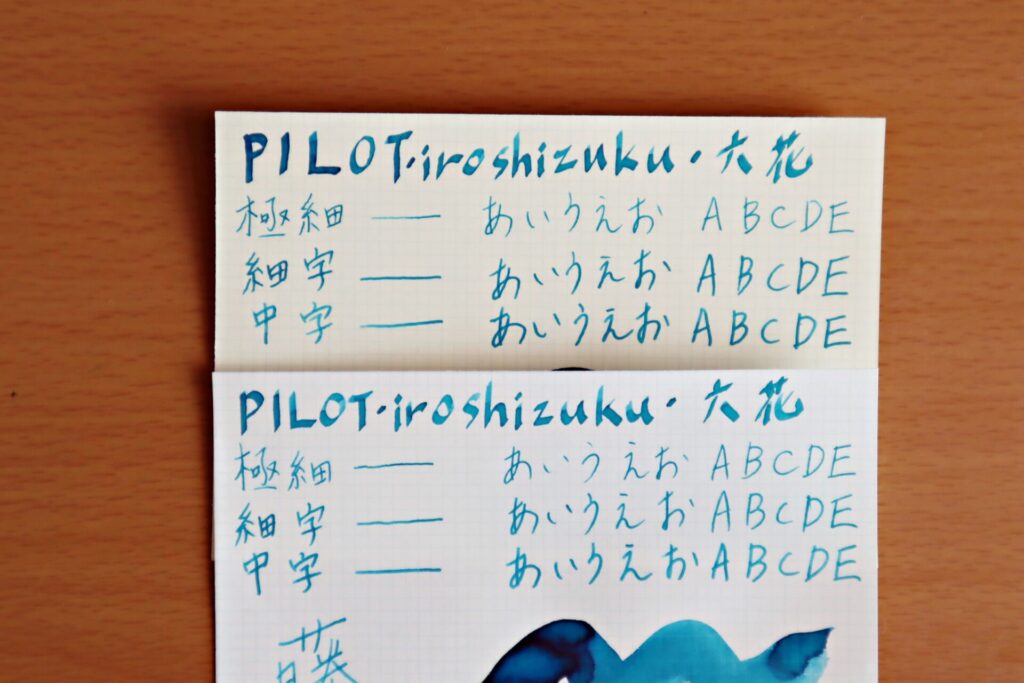 PILOT・iroshizuku・六花
極細 — あいうえお ABCDE
細字 — あいうえお ABCDE
中字 — あいうえお ABCDE
PILOT・iroshizuku・六花
極細 — あいうえお ABCDE
細字 — あいうえお ABCDE
中字 — あいうえお ABCDE